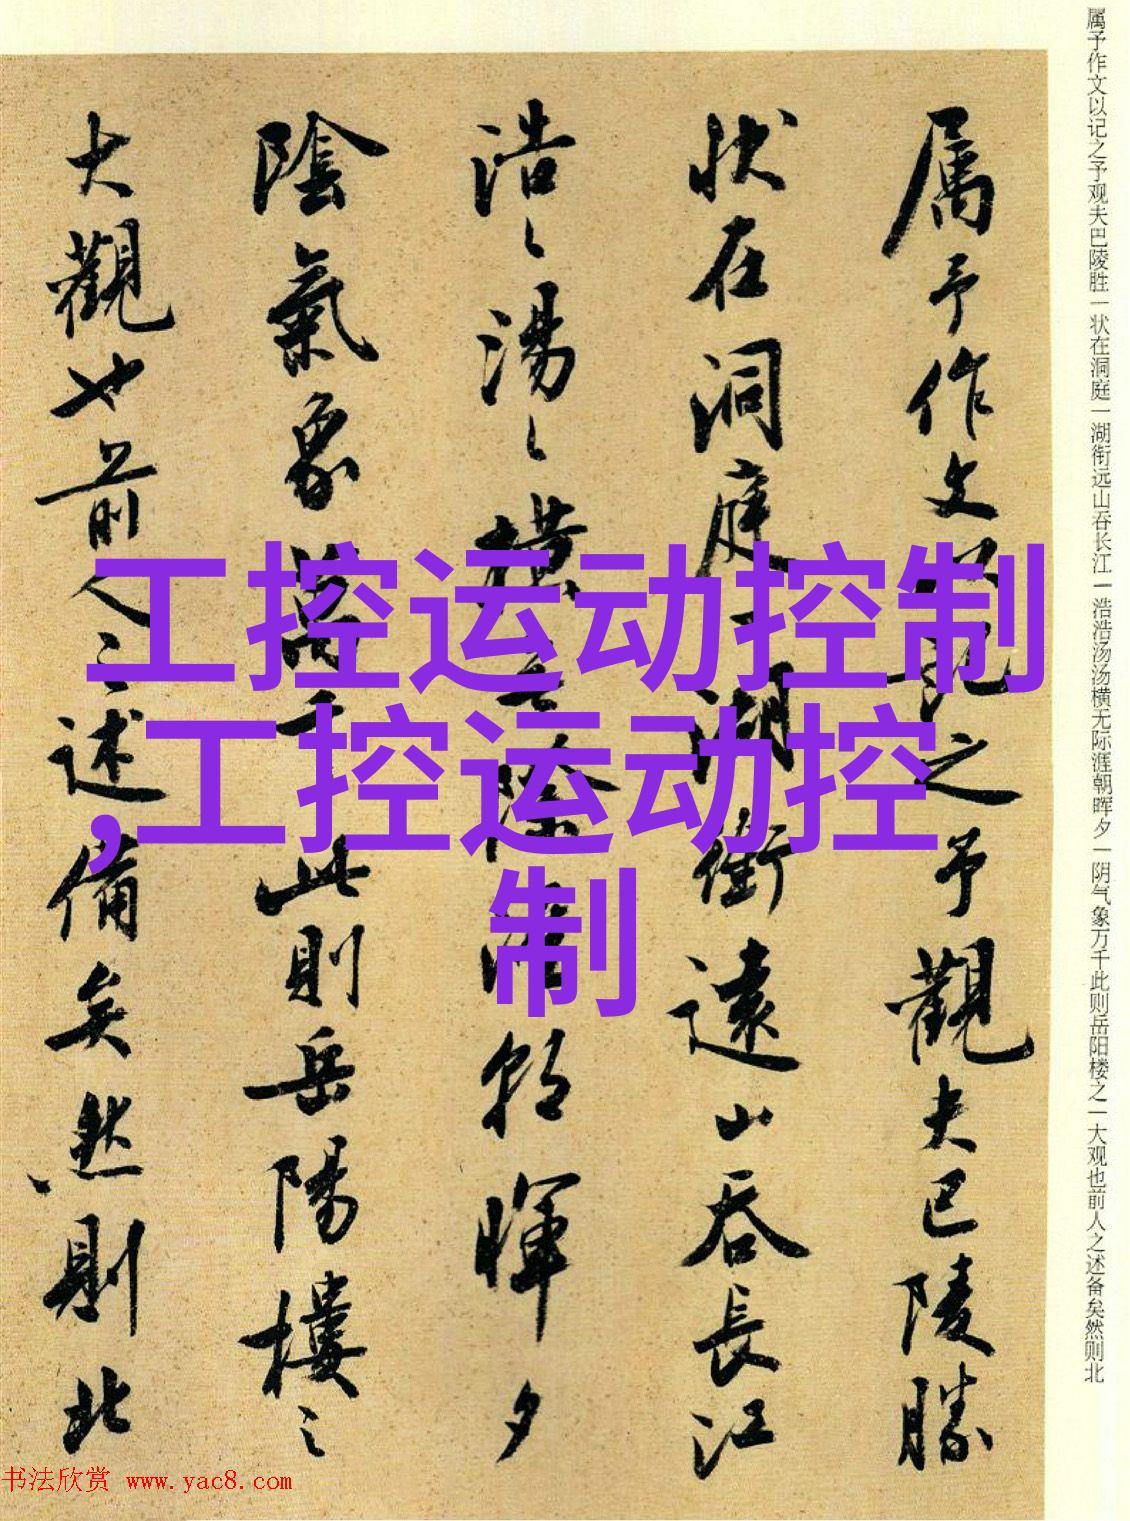 属予作文以记之予观夫巴陵胜一状在洞庭一湖衔远山吞长江一浩浩汤汤横无际涯朝晖夕一阴气象万千此则岳阳楼之一大观也前人之述备矣然则北
属予作文以记之予觀夫巴陵勝
状在洞庭一湖銜遠山吞長江
浩〻湯〻橫无際涯朝暉夕
陰氣象萬千此則岳陽樓之
大觀也前人之述備矣然則北
工控运动控制
,工控运动控
制
书法欣赏 www.yac8.com